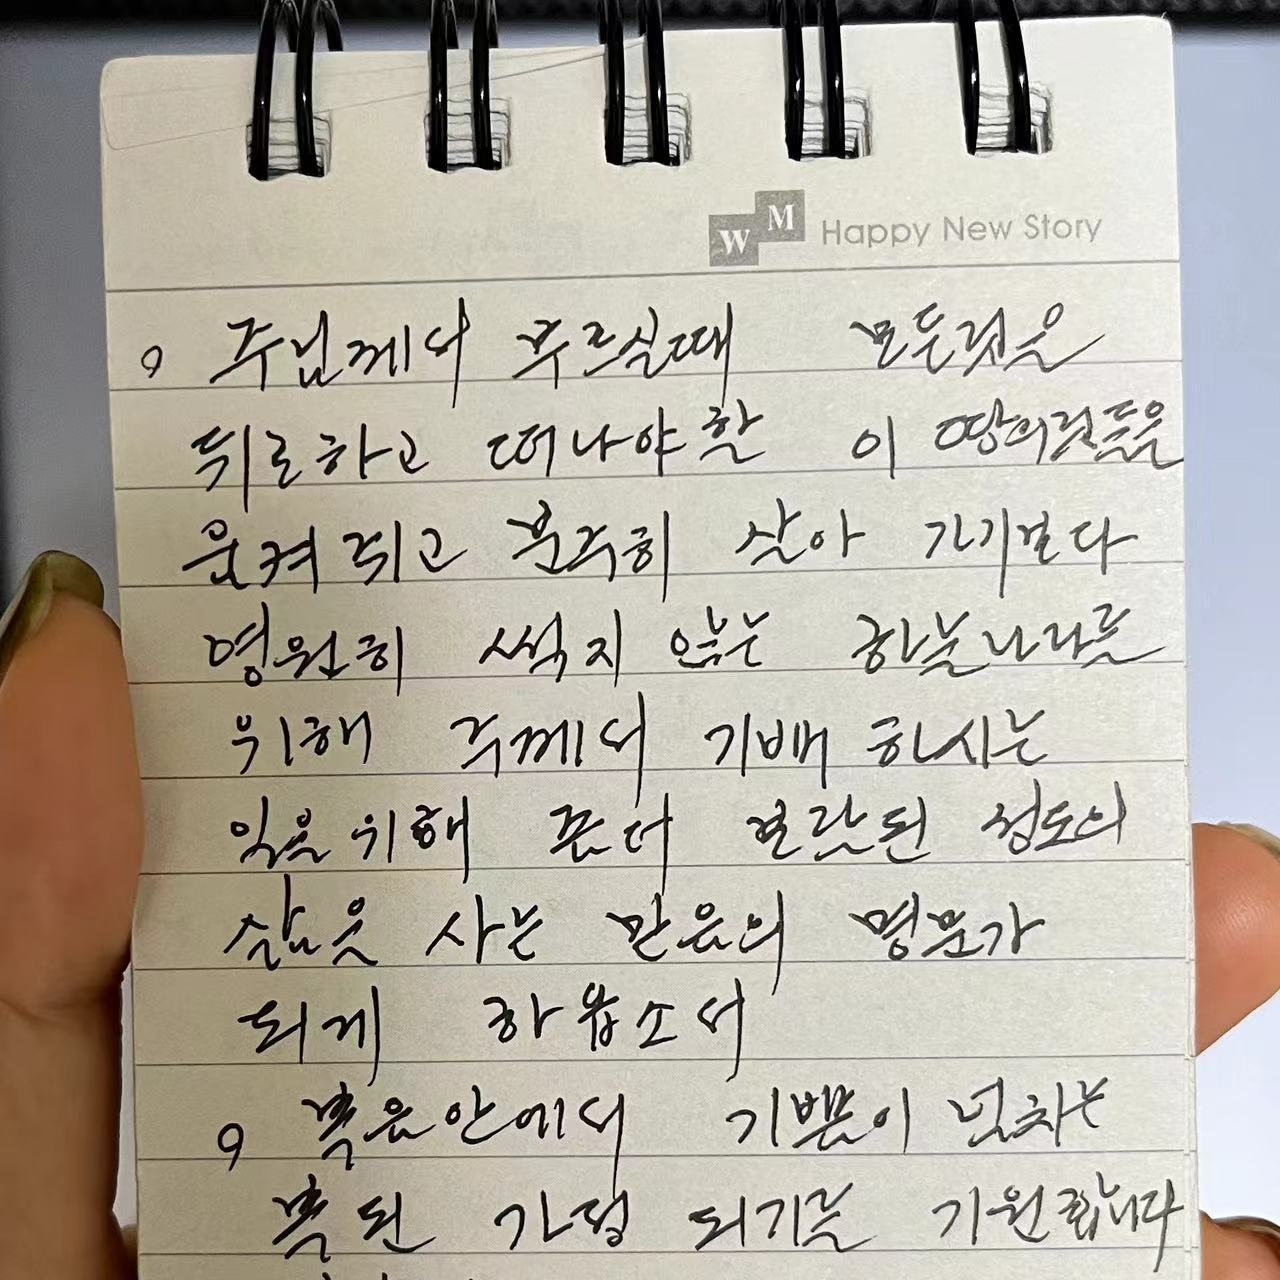 WM Happy New Story
o 주님께서 부르실때 모든것은
뒤로하고 떠나야할 이 땅의것들을
움켜쥐고 분주히 살아 가기보다
영원히 썩지 않는 하늘나라를
위해 주께서 기뻐 하시는
일을위해 좀더 보람된 성도의
삶을 사는 믿음의 명문가
되게 하옵소서
o 복음안에서 기쁨이 넘치는
복된 가정 되기를 기원합니다